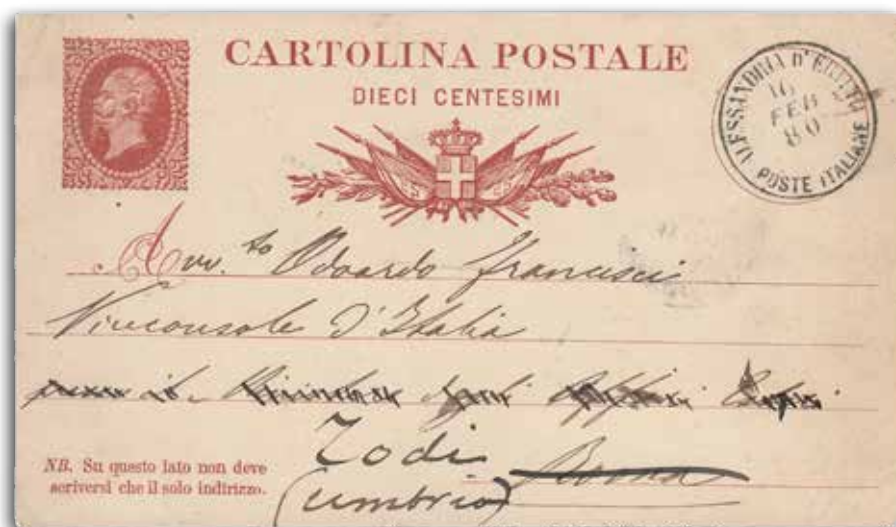 CARTOLINA POSTALE
DIECI CENTESIMI
ALESSANDRIA D'EGITTO
16
FEB
80
POSTE ITALIANE
Avv.to Odoardo Francisci
Viceconsole d'Italia
Todi
Roma
(Umbria)
NB. Su questo lato non deve
scriversi che il solo indirizzo.